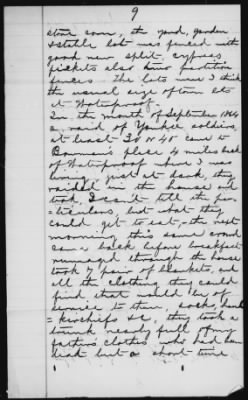 9
store room, the yard, garden
& stable lot was fenced with
good new split cypress
pickets also two partition
fences. The lots were I think
the usual size of town lots
at Waterproof.
In the month of September 1864
a raid of Yankee soldiers,
at least 30 or 40 came to
place 4 miles back
of Waterproof where I was
living, just at dark, they
raided in the house and
took, I can't tell the par-
=ticulars, but what they
could get to eat, the next
morning this same crowd
came back before breakfast
rumaged through the house
took 7 pair of blankets, and
all the clothing they could
find that would be of
service to them, socks, hand
=kerchiefs &c, they took a
trunk nearly full of my
father's clothes who had been
dead but a short time